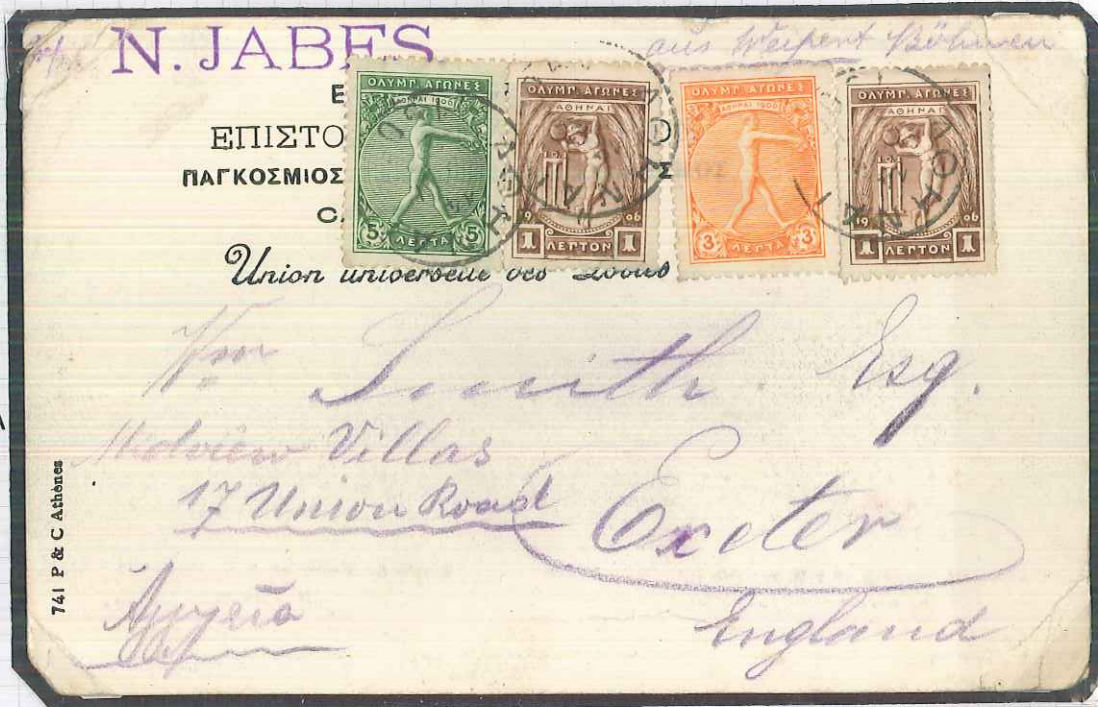 N. JABES
aus Weipert Böhmen
Ε
ΕΠΙΣΤΟ
ΠΑΓΚΟΣΜΙΟΣ Σ
C
Union universelle des Postes
ΟΛΥΜΠ. ΑΓΩΝΕΣ
ΑΘΗΝΑΙ 1906
5 ΛΕΠΤΑ 5
ΟΛΥΜΠ. ΑΓΩΝΕΣ
ΑΘΗΝΑΙ
19 06
1 ΛΕΠΤΟΝ 1
ΟΛΥΜΠ. ΑΓΩΝΕΣ
ΑΘΗΝΑΙ 1906
3 ΛΕΠΤΑ 3
ΟΛΥΜΠ. ΑΓΩΝΕΣ
ΑΘΗΝΑΙ
19 06
1 ΛΕΠΤΟΝ 1
Smith. Esq.
Villas
17 Union Road
Exeter
England
Αγγλία
741 P & C Athènes